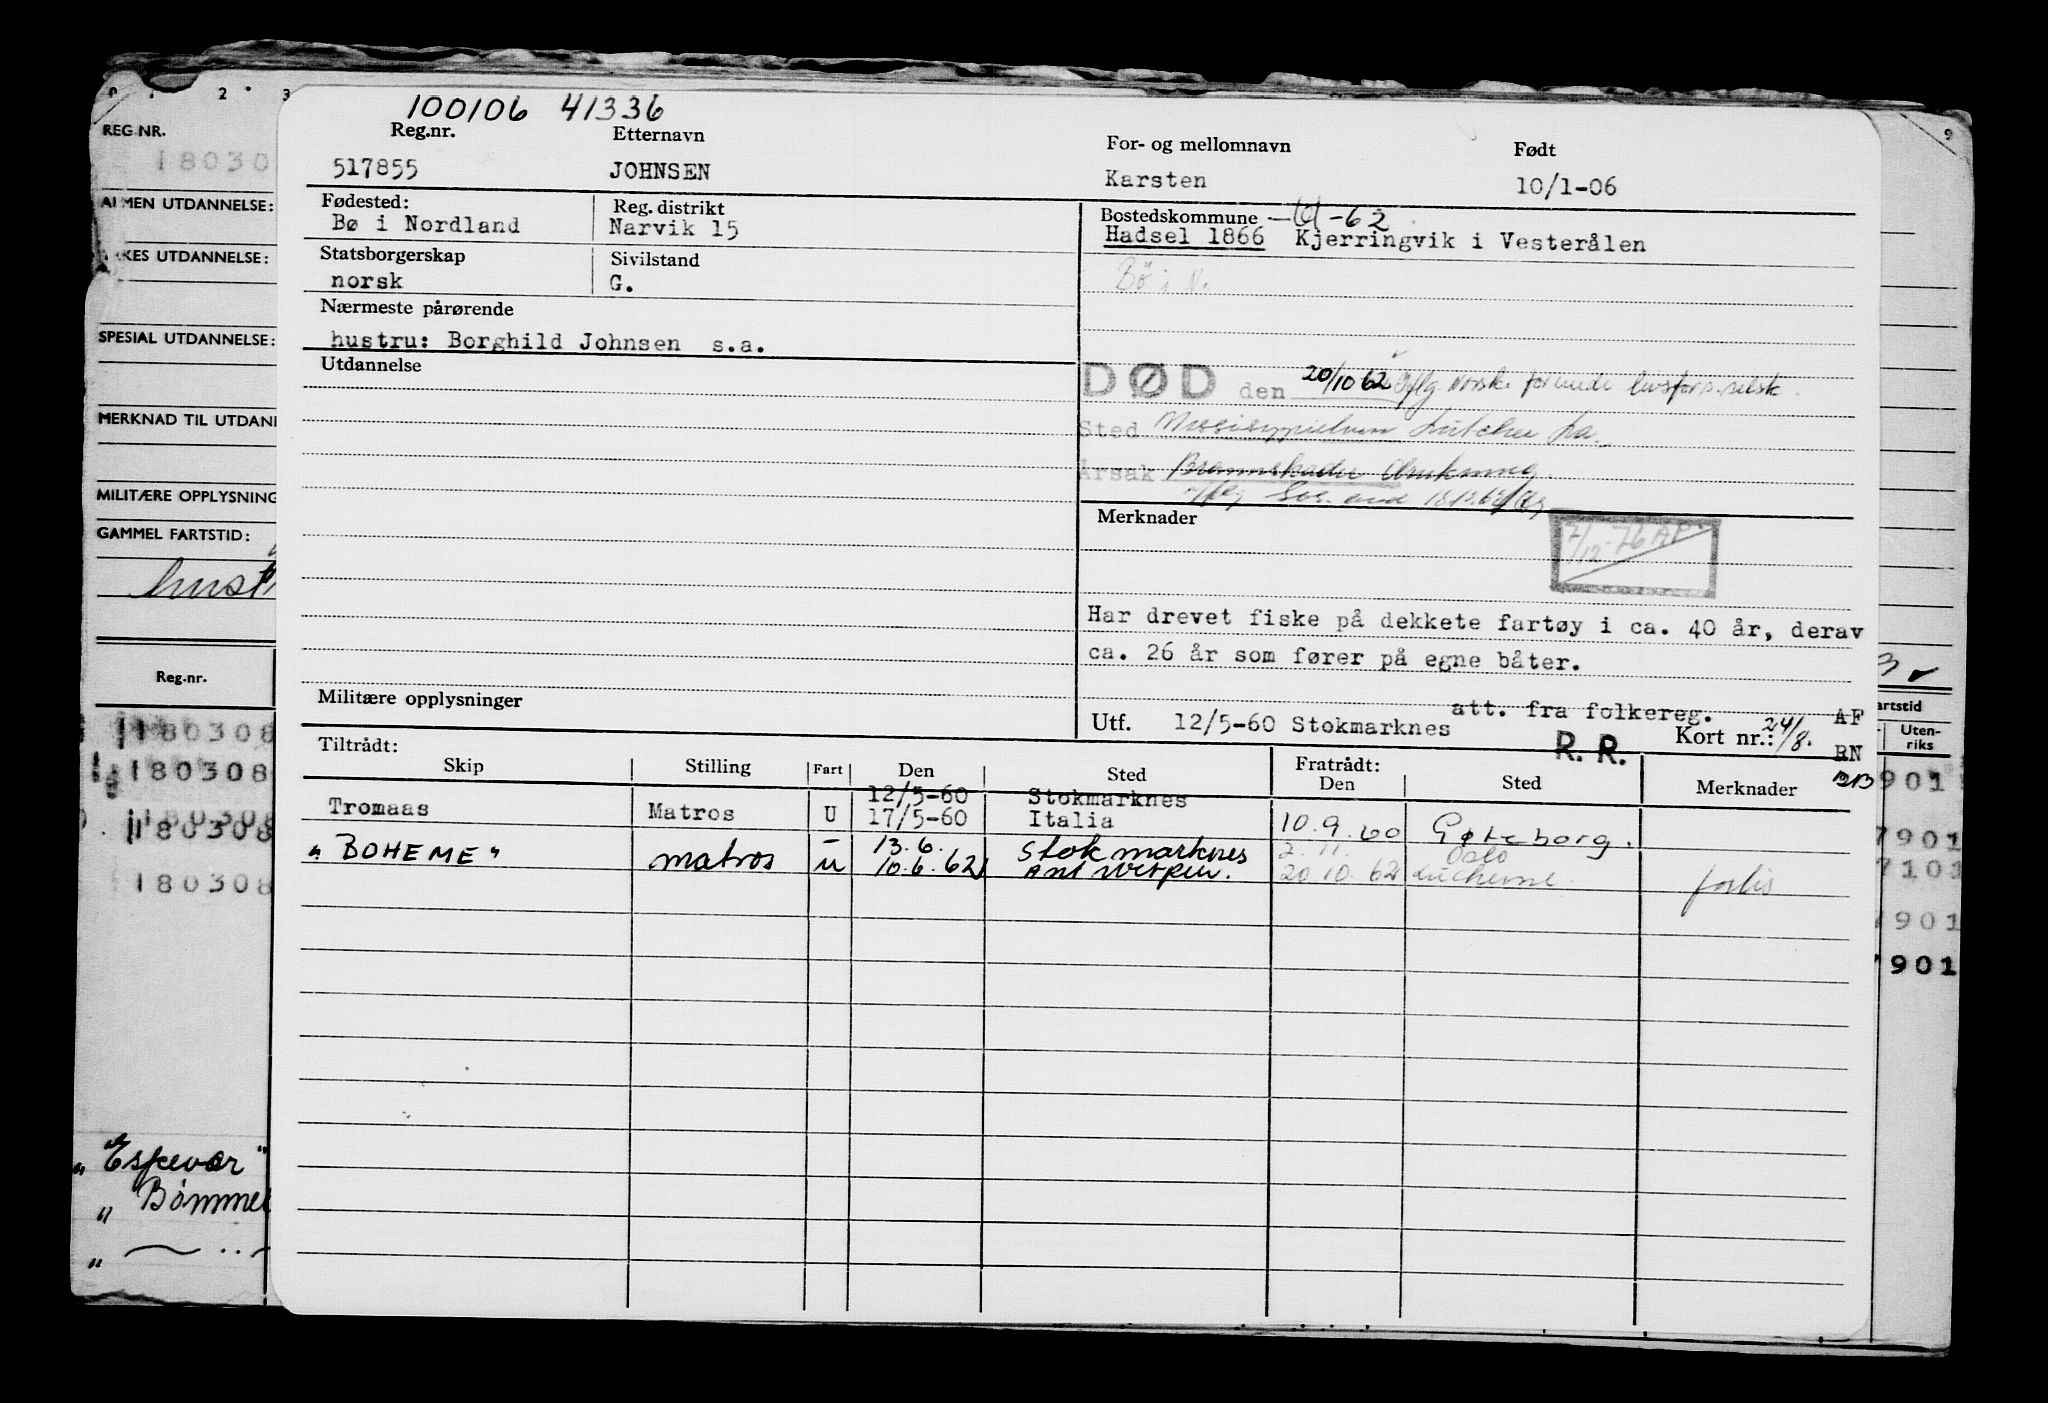 0 1 2 3 9
100106 41336
REG.NR. Reg.nr. Etternavn For- og mellomnavn Født
180308 517855 JOHNSEN Karsten 10/1-06
ALMEN UTDANNELSE: Fødested: Reg. distrikt Bostedskommune -62
Bø i Nordland Narvik 15 Hadsel 1866 Kjerringvik i Vesterålen
YRKES UTDANNELSE: Statsborgerskap Sivilstand
norsk G. Bö i N.
Nærmeste pårørende
SPESIAL UTDANNELSE: hustru: Borghild Johnsen s.a.
Utdannelse
DØD den 20/10 62 iflg norske forenede livsfors.selsk.
MERKNAD TIL UTDANN
Sted Missisippielven Lutcher La.
Årsak Brannskader Drukning.
iflg
MILITÆRE OPPLYSNING
Merknader
GAMMEL FARTSTID: 2/12-76 AP
Har drevet fiske på dekkete fartøy i ca. 40 år, derav
ca. 26 år som fører på egne båter.
Reg.nr.
Militære opplysninger att. fra folkereg. AF
Utf. 12/5-60 Stokmarknes R. R. Kort nr.: 24/8. RN
BB
artstid
Uten-
riks
Tiltrådt: Fratrådt:
Skip Stilling Fart Den Sted Den Sted Merknader
12/5-60 Stokmarknes
Tromaas Matros U 17/5-60 Italia 10.9.60 Gøteborg.
13.6. Stokmarknes 2.11. Oslo
"BOHEME" matros u 10.6.62 Antwerpen. 20.10.62 forlis
180308
180308
180308
180308
180308
901
7901
7101
7901
7901
"Espevær"
" Bømmel
" — .. —